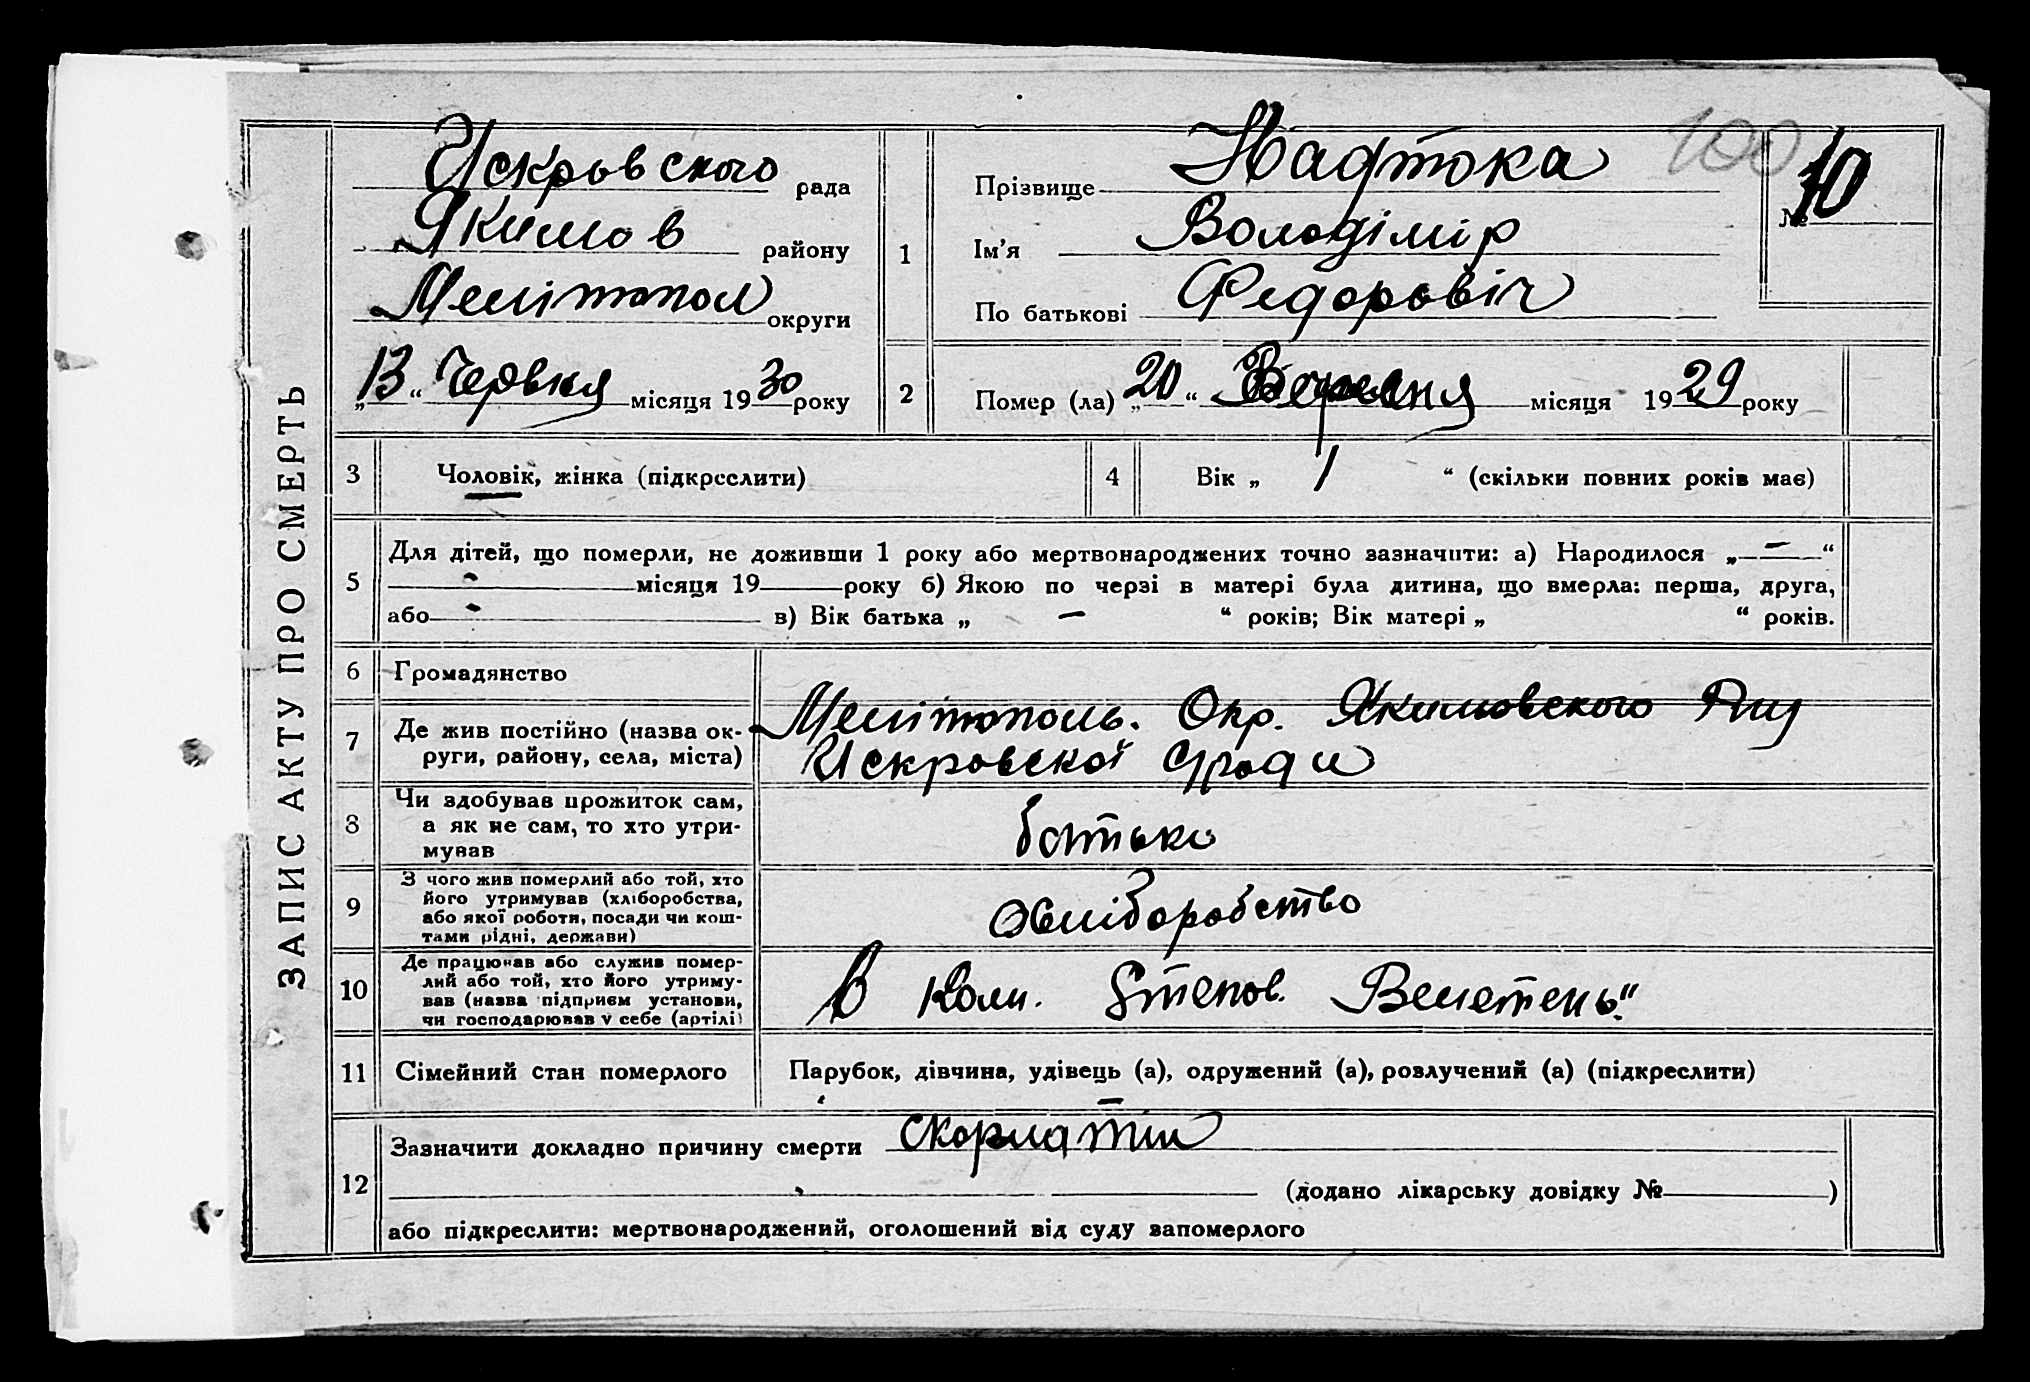 ЗАПИС АКТУ ПРО СМЕРТЬ
Искровского рада
Якимов району
Мелітопол округи
„13“ Червня місяця 1930 року
100
№ 10
1
Прізвище Надтока
Ім’я Володімір
По батькові Федоровіч
2
Помер (ла) „20“ Вересня місяця 1929 року
3 Чоловік, жінка (підкреслити)
4 Вік „ 1 “ (скільки повних років має)
5
Для дітей, що померли, не доживши 1 року або мертвонароджених точно зазначити: а) Народилося „ — “
- місяця 19 року б) Якою по черзі в матері була дитина, що вмерла: перша, друга,
або - в) Вік батька „ — “ років; Вік матері „ “ років.
6 Громадянство
7 Де жив постійно (назва ок-
руги, району, села, міста)
Мелітополь. Окр. Якимовского
Искровскої ради
8 Чи здобував прожиток сам,
а як не сам, то хто утри-
мував
батько
9 З чого жив померлий або той, хто
його утримував (хліборобства,
або якої роботи, посади чи кош-
тами рідні, держави)
хліборобство
10 Де працював або служив помер-
лий або той, хто його утриму-
вав (назва підприєм установи,
чи господарював у себе (артілі)
В
11 Сімейний стан померлого
Парубок, дівчина, удівець (а), одружений (а), розлучений (а) (підкреслити)
12
Зазначити докладно причину смерти скорлатіи
(додано лікарську довідку № )
або підкреслити: мертвонароджений, оголошений від суду запомерлого